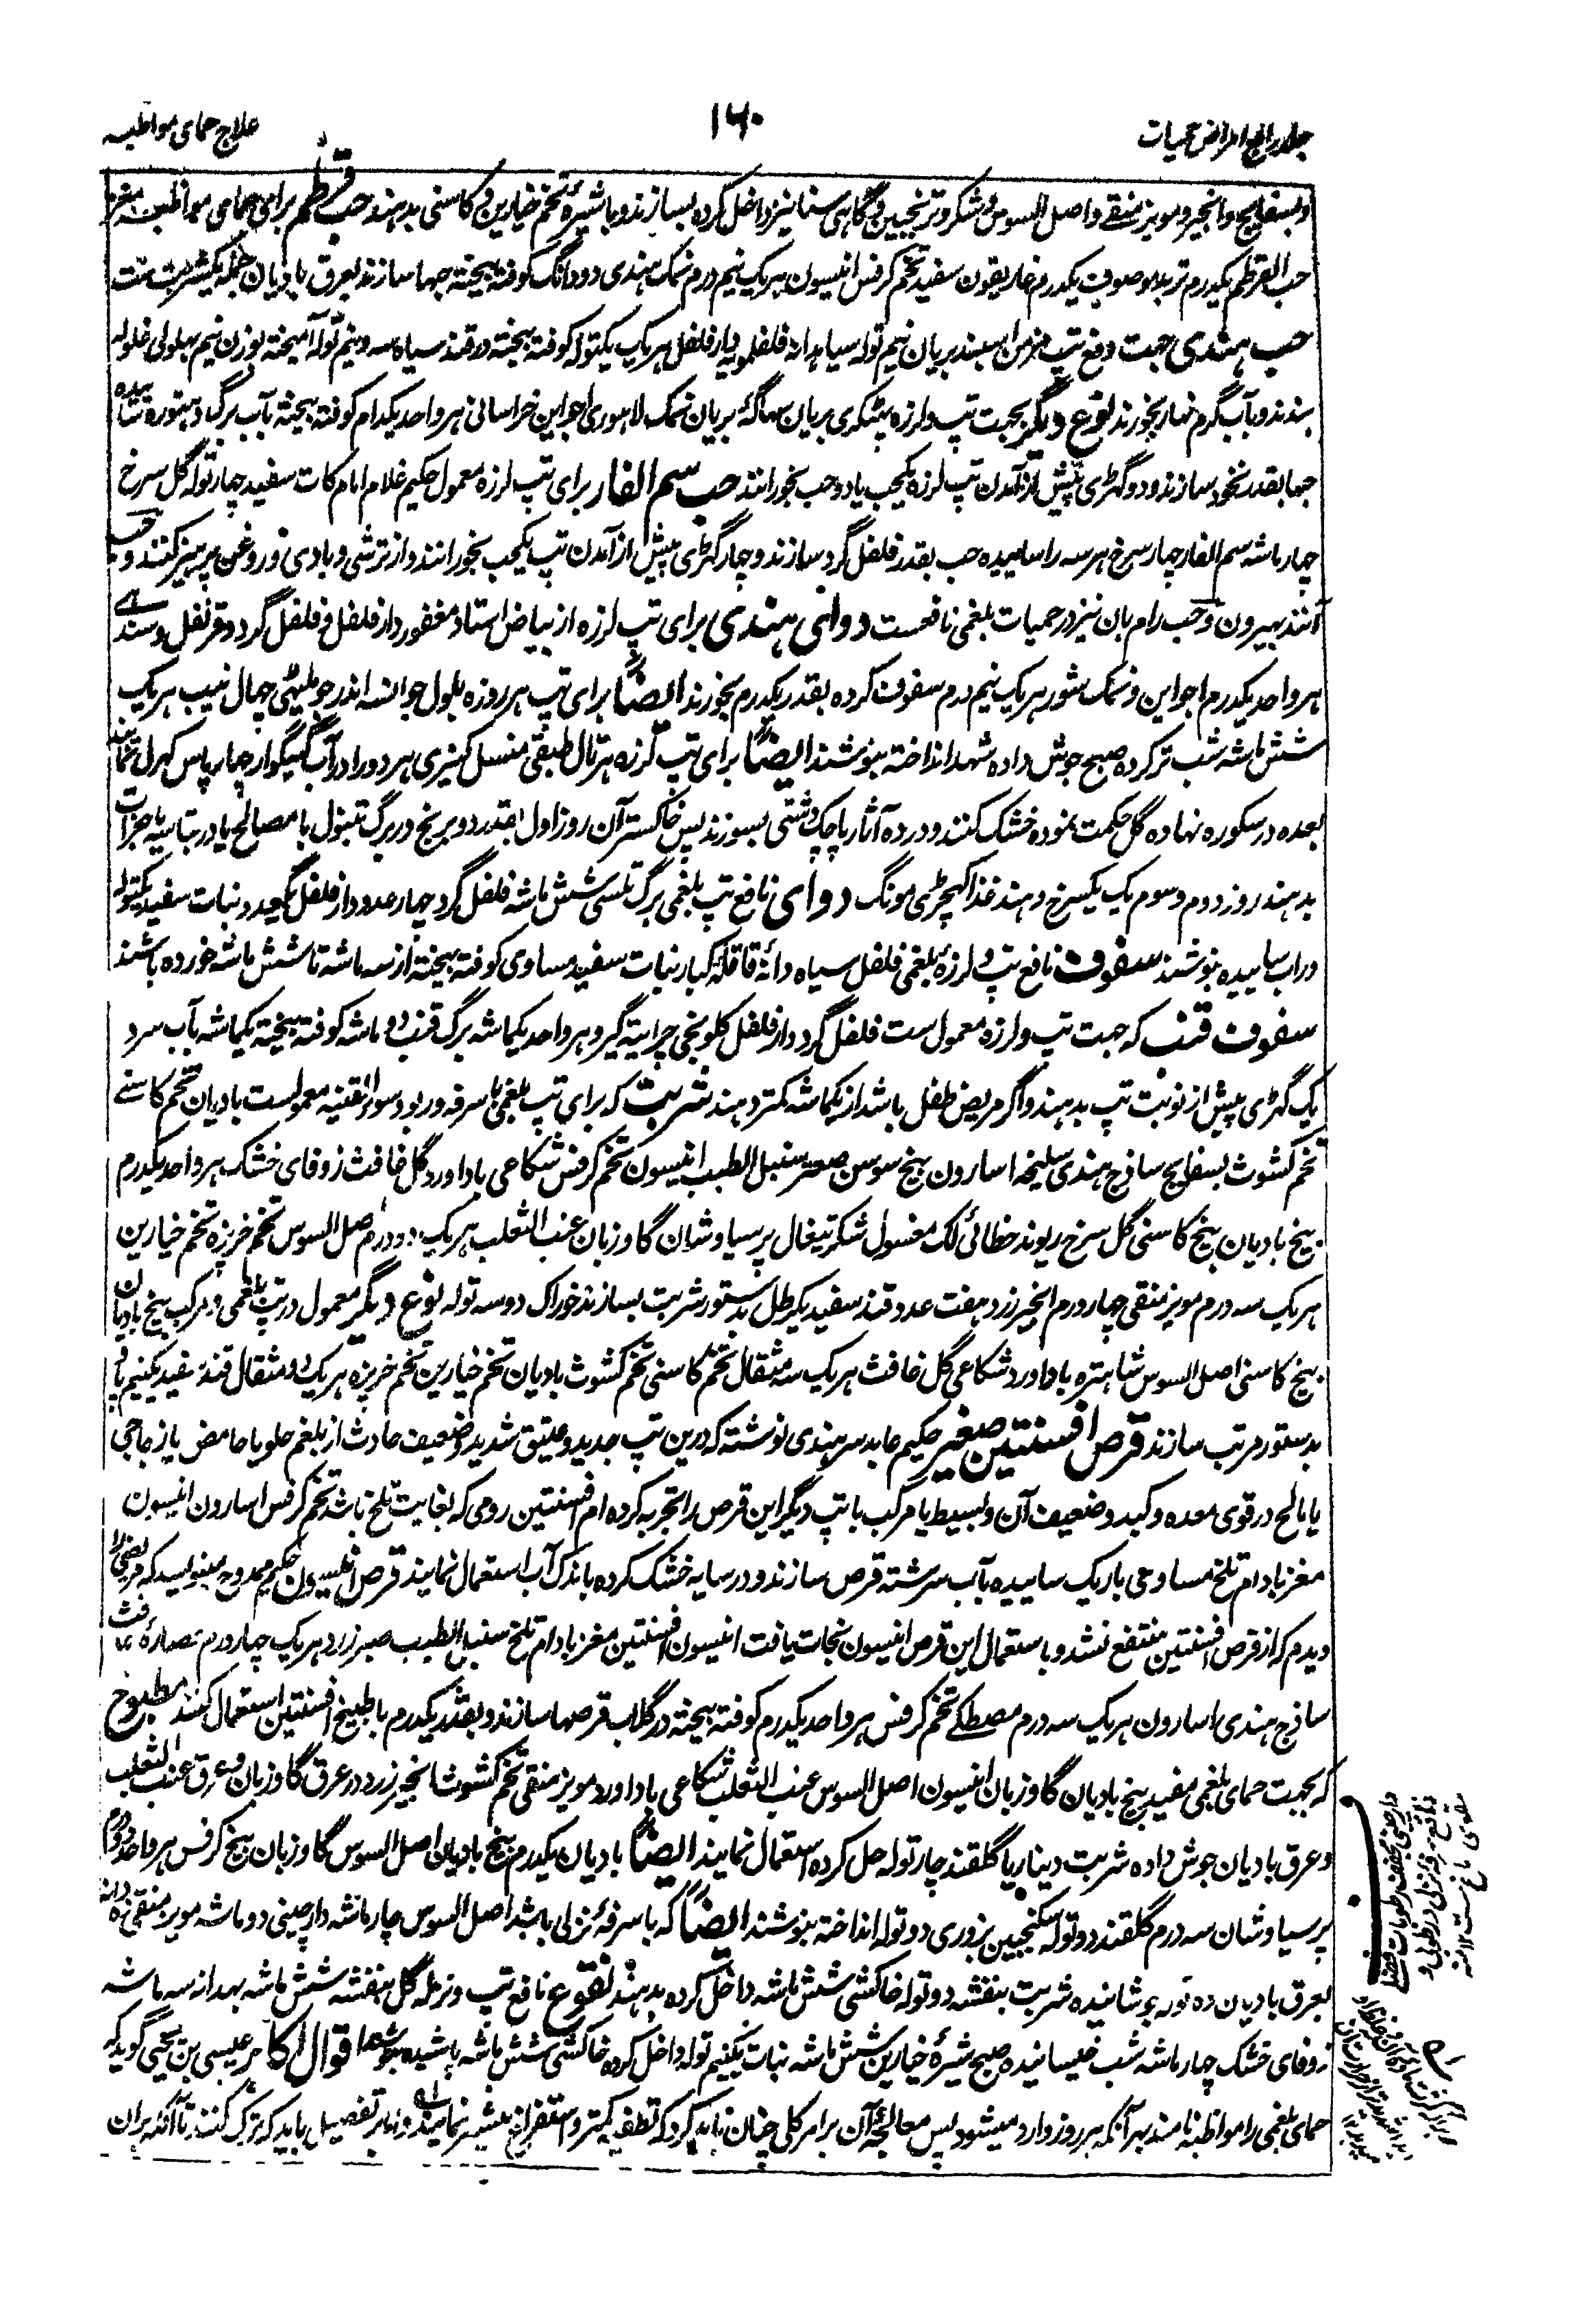 جلد رابع امراض حمیات
۱۶۰
علاج حمای مواظبه
وبسفایج وانجیر ومویز منقے واصل السوس وشکر وترنجبین وگاہی سنا نیز داخل کردہ بسازند وبا شیرۂ تخم خیارین وکاسنی بدہند حب قرطم برای حمای مواظبہ مغز
حب القرطم یکدرم تربد موصوف یکدرم غاریقون سفید تخم کرفس انیسون ہریک نیم درم نمک ہندی دو دانگ کوفتہ بیختہ حبہا سازند بعرق بادیان جملہ یکشربت ست
حب ہندی جہت دفع تپ مزمن اسپند بریان نیم تولہ سیاہدانہ فلفلمویہ دارفلفل ہریک یکتولہ کوفتہ بیختہ در قند سیاہ سہ ونیم تولہ آمیختہ بوزن نیم بہلولی غلولہ
بندند وبآب گرم نہار بخورند نوع دیگر بجہت تپ ولرزہ پھٹکری بریان سہاگہ بریان نمک لاہوری اجواین خراسانی ہر واحد یکدام کوفتہ بیختہ بآب برگ دہتورہ سائیدہ
حبہا بقدر نخود سازند ودو گھڑی پیش از آمدن تپ لرزہ یکحب یا دو حب بخورانند حب سم الفار برای تپ لرزہ معمول حکیم غلام امام کات سفید چہار تولہ گل سرخ
چہار ماشہ سم الفار چہار سرخ ہر سہ را سائیدہ حب بقدر فلفل گرد سازند وچہار گھڑی پیش از آمدن تپ یکحب بخورانند واز ترشی وبادی وروغن پرہیز کنند وحب
آنند بہیرون وحب رام بان نیز در حمیات بلغمی نافعست دوائی ہندی برای تپ لرزہ از بیاض استاد مغفور دارفلفل وفلفل گرد وقرنفل وسندے
ہر واحد یکدرم اجواین ونمک شور ہریک نیم درم سفوف کردہ بقدر یکدرم بخورند ایضاً برای تپ ہر روزہ بلول جوانسہ اندرجو ملیٹھی چہال نیب ہریک
شش ماشہ شب تر کردہ صبح جوش دادہ شہد انداختہ بنوشند ایضاً برای تپ لرزہ ہرتال طبقی منسل کنیری ہر دو را در آب گھیگوار چہار پاس کہرل نمایند
بعدہ در سکورہ نہادہ گل حکمت نمودہ خشک کنند ودر دہ آثار پاچک دشتی بسوزند پس خاکستر آن روز اول بقدر دو برنج در برگ تنبول با مصالح یا در بتاسہ یا جغرات
بدہند روز دوم وسوم یک یکسرخ دہند غذا کہچڑی مونگ دوای نافع تپ بلغمی برگ تلسی شش ماشہ فلفل گرد چہار عدد دارفلفل یکعدد نبات سفید یکتولہ
در آب سائیدہ بنوشند سفوف نافع تپ ولرزہ بلغمی فلفل سیاہ دانۂ قاقلہ کبار نبات سفید مساوی کوفتہ بیختہ از سہ ماشہ تا شش ماشہ خوردہ باشند
سفوف قنب کہ جہت تپ ولرزہ معمول است فلفل گرد دارفلفل کلونجی چرایتہ گیرو ہر واحد یکماشہ برگ قنب دو ماشہ کوفتہ بیختہ یکماشہ بآب سرد
یک گھڑی پیش از نوبت تپ بدہند واگر مریض طفل باشد از یکماشہ کمتر دہند شربت کہ برای تپ بلغمی با سرفہ وربو وسوء القنیہ معمولست بادیان تخم کاسنے
تخم کشوث بسفایج ساذج ہندی سلیخہ اسارون بیخ سوسن صعتر سنبل الطیب انیسون تخم کرفس شکاعی باداورد گل غافث زوفای خشک ہر واحد یکدرم
بیخ بادیان بیخ کاسنی گل سرخ ریوند خطائی لک مغسول شکر تیغال پرسیاوشان گاوزبان عنب الثعلب ہریک دو درم اصل السوس تخم خرپزہ تخم خیارین
ہریک سہ درم مویز منقی چہار درم انجیر زرد ہفت عدد قند سفید یکرطل بدستور شربت بسازند خوراک دو سہ تولہ نوع دیگر معمول در تپ بلغمی ومرکب بیخ بادیان
بیخ کاسنی اصل السوس شاہترہ باداورد شکاعی گل غافث ہریک سہ مثقال تخم کاسنی تخم کشوث بادیان تخم خیارین تخم خرپزہ ہریک دو مثقال قند سفید یکنیم پاؤ
بدستور مرتب سازند قرص افسنتین صغیر حکیم عابد سرہندی نوشتہ کہ درین تپ جدید وعتیق شدید وضعیف حادث از بلغم حلو یا حامض یا زجاجی
یا مالح در قوی معدہ وکبد وضعیف آن وبسیط یا مرکب با تپ دیگر این قرص را تجربہ کردہ ام افسنتین رومی کہ بغایت تلخ باشد تخم کرفس اسارون انیسون
مغز بادام تلخ مساوی باریک سائیدہ بآب سرشتہ قرص سازند ودر سایہ خشک کردہ باندک آب استعمال نمایند قرص انیسون حکیم ممدوح مینویسد کہ مریضی را
دیدم کہ از قرص افسنتین منتفع نشد وباستعمال این قرص انیسون نجات یافت انیسون افسنتین مغز بادام تلخ سنبل الطیب صبر زرد ہریک چہار درم عصارۂ غافث
ساذج ہندی اسارون ہریک سہ درم مصطکے تخم کرفس ہر واحد یکدرم کوفتہ بیختہ در گلاب قرصہا سازند وبقدر یکدرم با طبیخ افسنتین استعمال کنند مطبوخ
کہ بجہت حمای بلغمی مفید بیخ بادیان گاوزبان انیسون اصل السوس عنب الثعلب شکاعی باداورد مویز منقی تخم کشوث انجیر زرد در عرق گاوزبان وعرق عنب الثعلب
وعرق بادیان جوش دادہ شربت دینار یا گلقند چار تولہ حل کردہ استعمال نمایند ایضاً بادیان یکدرم بیخ بادیان اصل السوس گاوزبان بیخ کرفس ہر واحد دو درم
پرسیاوشان سہ درم گلقند دو تولہ سکنجبین بزوری دو تولہ انداختہ بنوشند ایضاً کہ با سرفۂ نزلی باشد اصل السوس چار ماشہ دارچینی دو ماشہ مویز منقی دہ دانہ
بعرق بادیان دہ تولہ جوشانیدہ شربت بنفشہ دو تولہ خاکشی شش ماشہ داخل کردہ بدہند نقوع نافع تپ ونزلہ گل بنفشہ شش ماشہ بہدانہ سہ ماشہ
زوفای خشک چہار ماشہ شب خیسانیدہ صبح شیرۂ خیارین شش ماشہ نبات یکنیم تولہ داخل کردہ خاکشی شش ماشہ پاشیدہ بنوشند اقوال اکابر عیسی بن یحیی گوید کہ
حمای بلغمی را مواظبہ نامند بہر آنکہ ہر روز وارد میشود پس معالجۂ آن بر امر کلی چنان باید کرد کہ تطفیہ کمتر واستفراغ بیشتر نمایند